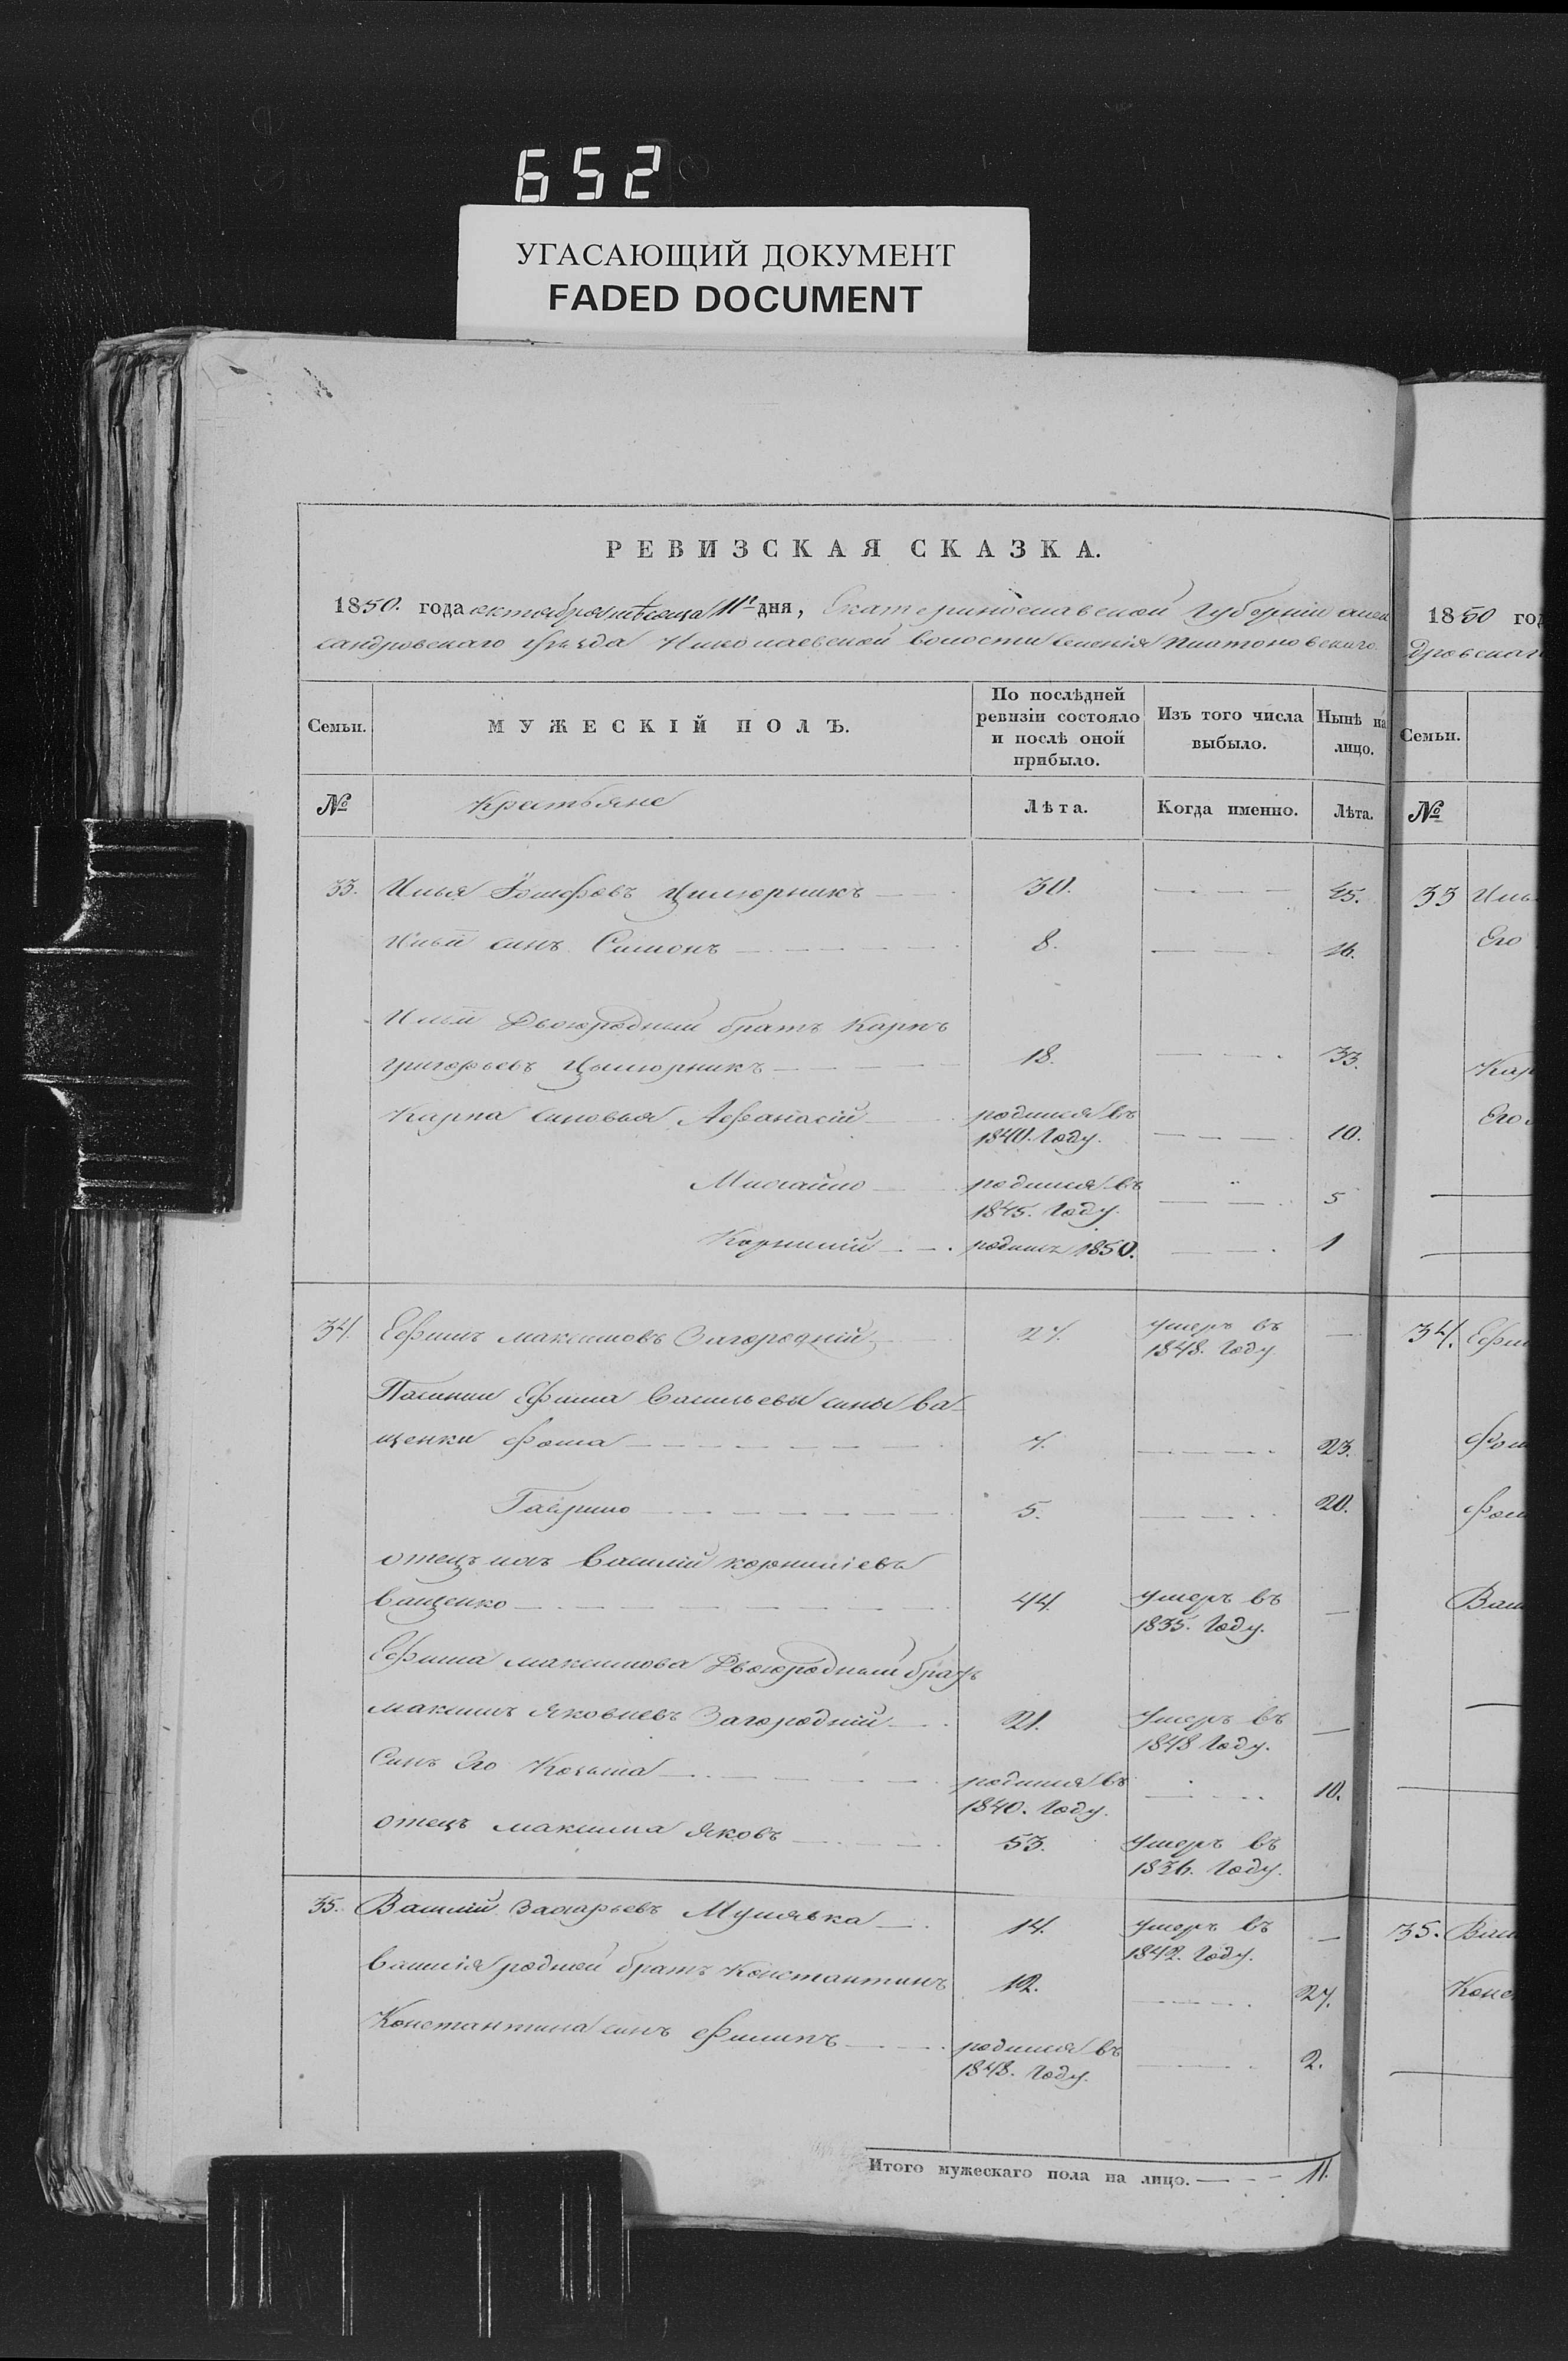 652
УГАСАЮЩИЙ ДОКУМЕНТ
FADED DOCUMENT
РЕВИЗСКАЯ СКАЗКА.
1850. года октября месяца 11го дня, Екатеринославской Губерніи алек
сандровскаго уезда Николаевской волости селенія Платоновскаго.
Семьи. МУЖЕСКІЙ ПОЛЪ. По послѣдней ревизіи состояло и послѣ оной прибыло. Изъ того числа выбыло. Нынѣ на лицо.
№ Крестьяне Лѣта. Когда именно. Лѣта.
33. Илья Іосифовъ 30. — — — 45.
Ильи синъ Симонъ — 8. — — — 16.
Ильи Двоюродный братъ Карпъ
григорьевъ — 18. — — — 33.
Карпа сыновья Афанасій — родился въ 1840. Году. — — — 10.
Михайло — родился въ 1845. Году. — — — 5
Корнилій — родилъ 1850. — — — 1
34. Ефимъ Максимовъ Загородній — 27. умеръ въ 1848. Году —
Ефима Васильевы сины Ва-
щенки Фома — 7. — — — 23.
Гаврило — 5. — — — 20.
отецъ ихъ Василій корниліевъ
Ващенко — 44. умеръ въ 1835. Году. —
Ефима максимова Двоюродный братъ
максимъ Яковлевъ Загородній — 21. Умеръ въ 1848 Году. —
Синъ Его Козьма — родился въ 1840. Году. — — — 10.
отецъ максима Яковъ — 53. Умеръ въ 1836. Году.
35. Василій Захарьевъ Мулявка — 14. умеръ въ 1842. Году. —
василія родной братъ Константинъ 12. — — — 27.
Константина синъ Филипъ — родился въ 1848. Году. — — — 2.
Итого мужескаго пола на лицо. — — — 11.
1850 год
дровскаг
Семьи.
№
33 Иль
Его
Кар
Его
34. Ефи
Фом
Фом
Вас
35. Вас
Конс